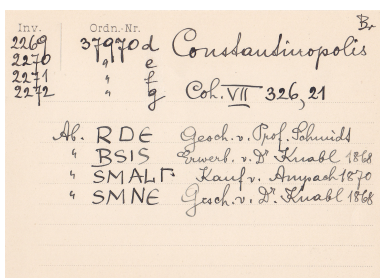 Br
Inv. Ordn.-Nr.
2269 37970 d Constantinopolis
2270 " e
2271 " f
2272 " g Coh. VII 326, 21
Ab. RDE Gesch. v. Prof. Schmidt
" BSIS Erwerb. v. Dr Knabl 1868
" SMALΓ Kauf v. Ampach 1870
" SMNE Gesch. v. Dr. Knabl 1868